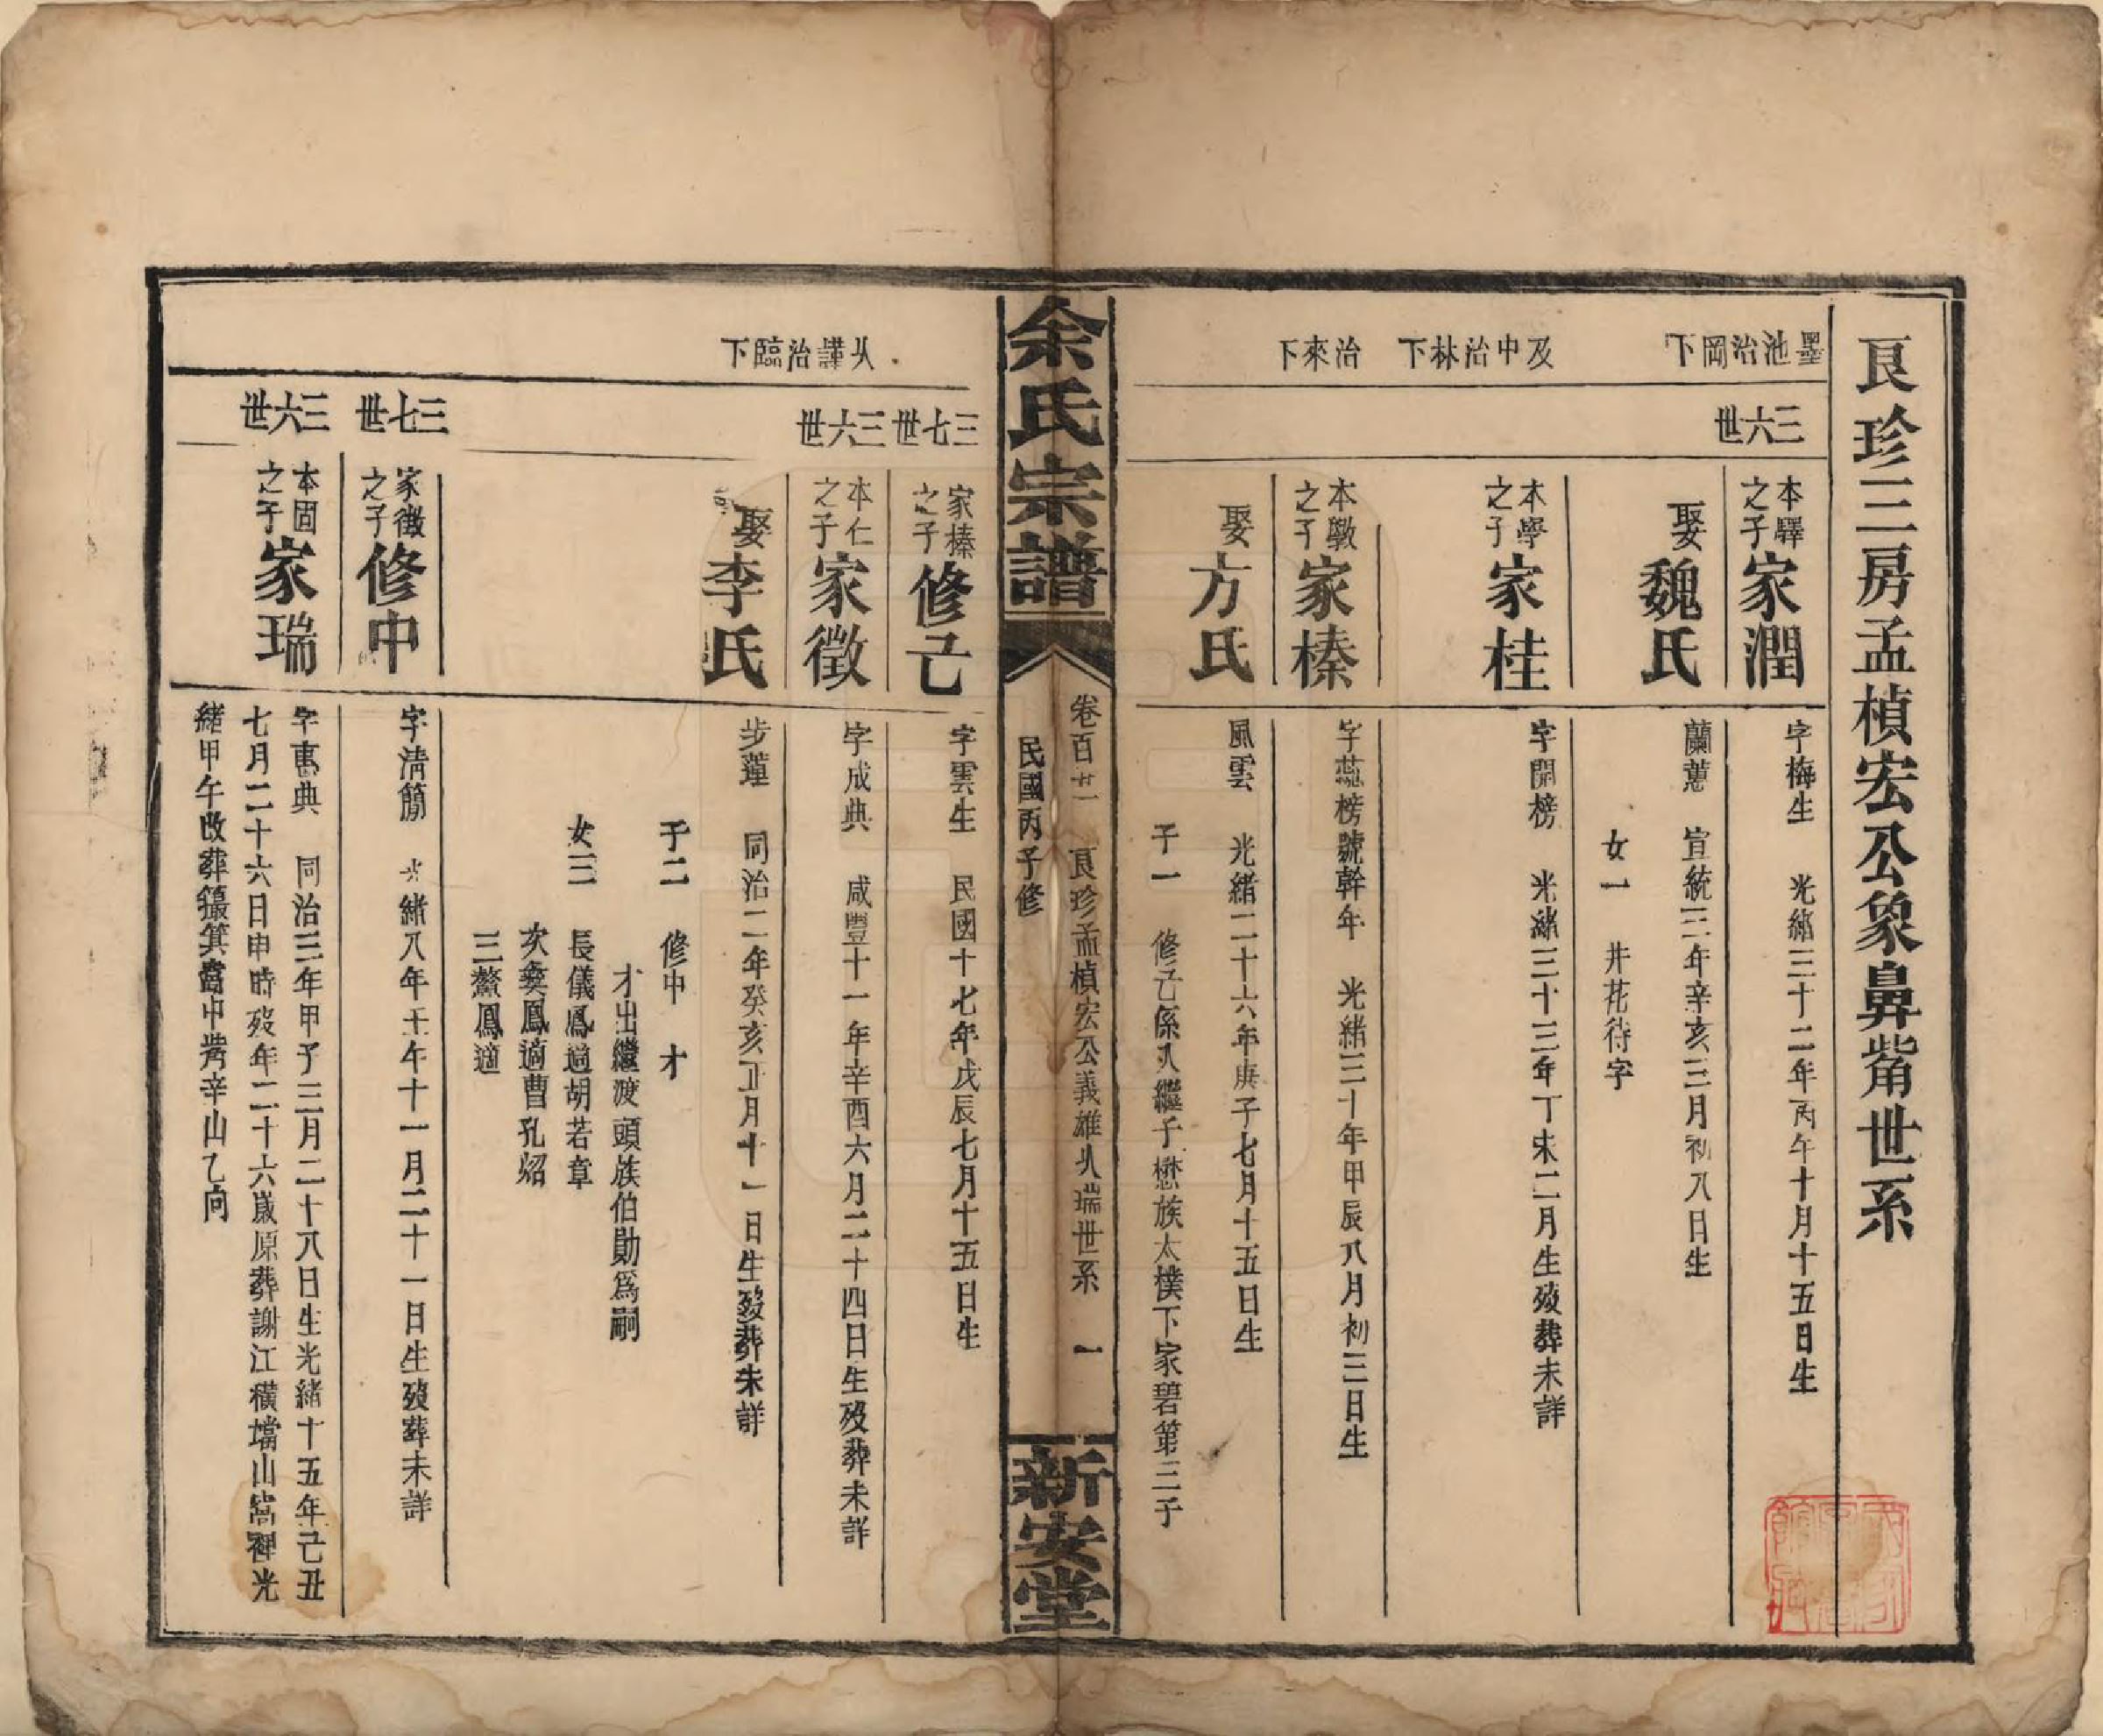 良珍三房孟楨宏公象鼻觜世系
墨池治岡下
三六世
本驛之子
家潤
字梅生 光緒三十二年丙午十月十五日生
娶魏氏
蘭蕙 宣統三年辛亥三月初八日生
女一 井花待字
及中治林下
本學之子
家桂
字開榜 光緒三十三年丁未二月生歿葬未詳
治來下
本斆之子
家榛
字蕊榜號幹年 光緒三十年甲辰八月初三日生
娶方氏
風雲 光緒二十六年庚子七月十五日生
子一 修己係入繼子懋族太樸下家碧第三子
余氏宗譜
卷百廿一 良珍孟楨宏公義雄從瑞世系 一
民國丙子修
新安堂
三七世
家榛之子
修己
字雲生 民國十七年戊辰七月十五日生
從謹治臨下
三六世
本仁之子
家徵
字成典 咸豐十一年辛酉六月二十四日生歿葬未詳
娶李氏
步蓮 同治二年癸亥正月十一日生歿葬未詳
子二 修中 才
才出繼渡頭族伯勛爲嗣
女三 長儀鳳適胡若章
次彝鳳適曹孔炤
三鰲鳳適
三七世
家徵之子
修中
字清簡 光緒八年壬午十一月二十一日生歿葬未詳
三六世
本固之子
家瑞
字惠典 同治三年甲子三月二十八日生光緒十五年己丑
七月二十六日申時歿年二十六歲原葬謝江橫壋山窩裡光
緒甲午改葬簸箕窩中觜辛山乙向